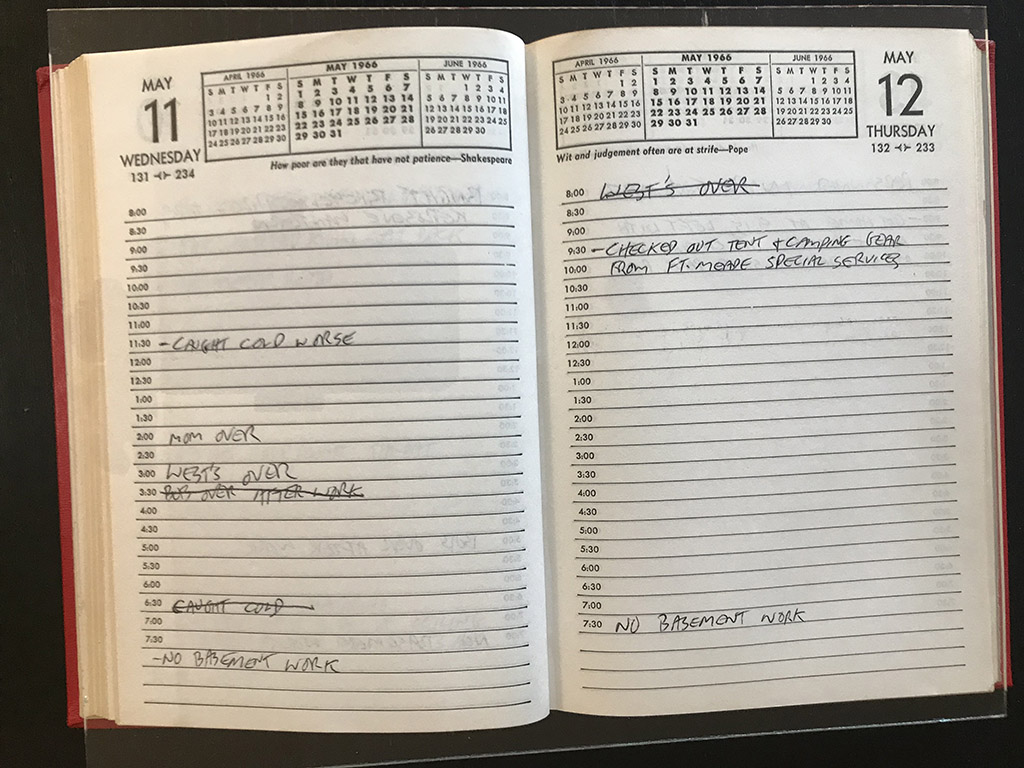 MAY
11
WEDNESDAY
131 ⊰⊱ 234
APRIL 1966
S M T W T F S
1 2
3 4 5 6 7 8 9
10 11 12 13 14 15 16
17 18 19 20 21 22 23
24 25 26 27 28 29 30
MAY 1966
S M T W T F S
1 2 3 4 5 6 7
8 9 10 11 12 13 14
15 16 17 18 19 20 21
22 23 24 25 26 27 28
29 30 31
JUNE 1966
S M T W T F S
1 2 3 4
5 6 7 8 9 10 11
12 13 14 15 16 17 18
19 20 21 22 23 24 25
26 27 28 29 30
How poor are they that have not patience—Shakespeare
8:00
8:30
9:00
9:30
10:00
10:30
11:00
11:30 - CAUGHT COLD WORSE
12:00
12:30
1:00
1:30
2:00 MOM OVER
2:30
3:00 WEST'S OVER
3:30 BOB OVER AFTER WORK
4:00
4:30
5:00
5:30
6:00
6:30 CAUGHT COLD
7:00
7:30
- NO BASEMENT WORK
APRIL 1966
S M T W T F S
1 2
3 4 5 6 7 8 9
10 11 12 13 14 15 16
17 18 19 20 21 22 23
24 25 26 27 28 29 30
MAY 1966
S M T W T F S
1 2 3 4 5 6 7
8 9 10 11 12 13 14
15 16 17 18 19 20 21
22 23 24 25 26 27 28
29 30 31
JUNE 1966
S M T W T F S
1 2 3 4
5 6 7 8 9 10 11
12 13 14 15 16 17 18
19 20 21 22 23 24 25
26 27 28 29 30
MAY
12
THURSDAY
132 ⊰⊱ 233
Wit and judgement often are at strife—Pope
8:00 WEST'S OVER
8:30
9:00
9:30 - CHECKED OUT TENT & CAMPING GEAR
10:00 FROM FT. MEADE SPECIAL SERVICES
10:30
11:00
11:30
12:00
12:30
1:00
1:30
2:00
2:30
3:00
3:30
4:00
4:30
5:00
5:30
6:00
6:30
7:00
7:30 NO BASEMENT WORK